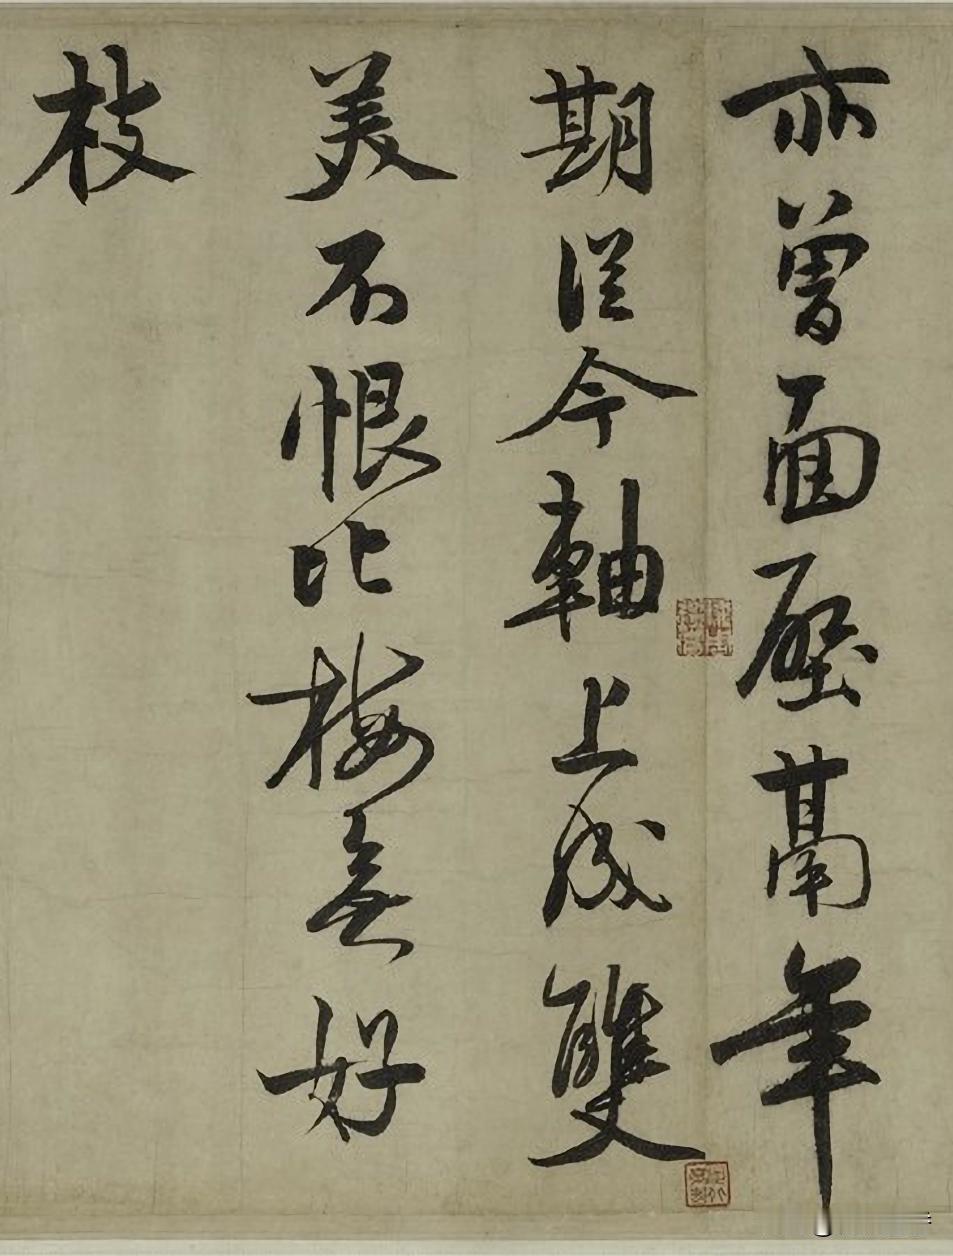 亦曾面壁鬲年
期從今軸上成雙
美不恨比梅無好
枝